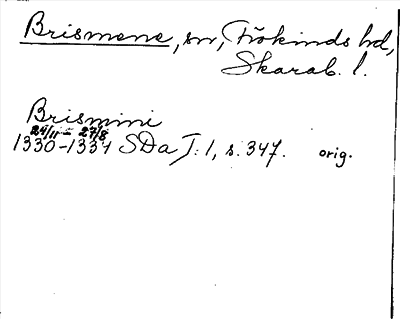 Brismene, sn, Frökinds hd,
Skarab. l.
Brismini
24/11 – 27/8
1330–1334 SDa I: 1, s. 347. orig.